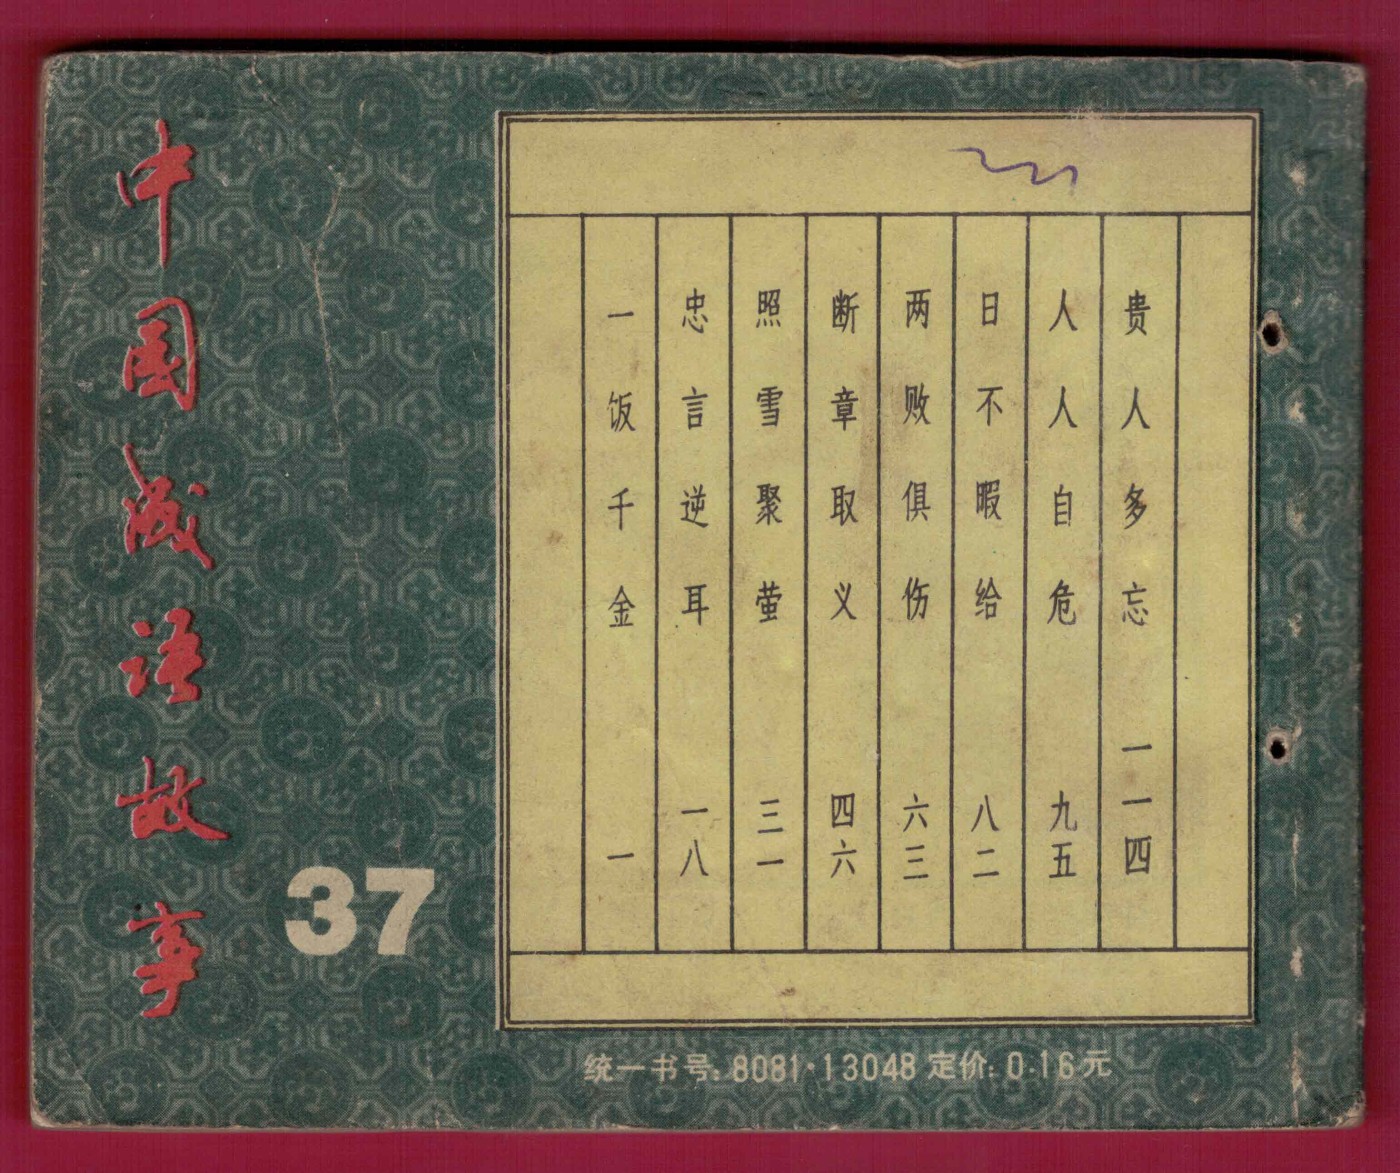 中国成语故事
37
一饭千金 一
忠言逆耳 一八
照雪聚萤 三一
断章取义 四六
两败俱伤 六三
日不暇给 八二
人人自危 九五
贵人多忘 一一四
统一书号: 8081·13048 定价: 0.16元